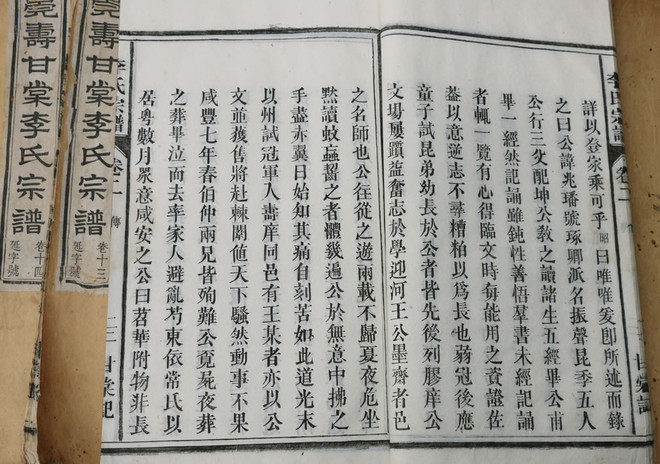 詳以登家乘可乎昭曰唯唯爰卽所述而錄
之曰公諱兆璠號琢卿派名振聲昆季五人
公行三父配坤公教之讀諸生五經畢公甫
畢一經然記誦雖鈍性善悟羣書未經記誦
者輒一覽有心得臨文時每能用之資證佐
葢以意逆志不尋糟粕以爲長也蒻冠後應
童子試昆弟幼長於公者皆先後列膠庠公
文場屢躓益奮志於學迎河王公墨齋者邑
之名師也公往從之遊兩載不歸夏夜危坐
黙讀蚊蝱嘬之者體幾遍公於無意中拂之
手盡赤翼日始知其痛自刻苦如此道光末
以州試冠軍人壽庠同邑有王某者亦以公
文並獲售將赴棘闈値天下騷然動事不果
咸豐七年春伯仲兩兄皆殉難公竟屍夜葬
之葬畢泣而去率家人避亂芍東依常氏以
居粤數月眾意咸安之公曰苕華附物非長
李氏宗譜 卷二 傳 甘棠記
壽甘棠李氏宗譜 卷十三 延字號
壽甘棠李氏宗譜 卷十四 延字號